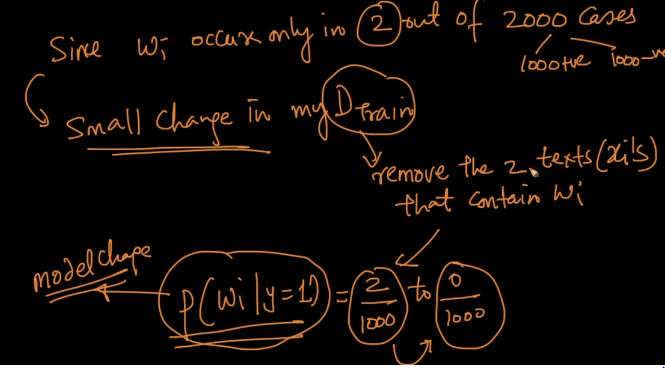 Since Wi occur only in 2 out of 2000 cases
1000+ve 1000-ve
Small change in my Dtrain
remove the 2 texts (xi's)
that contain Wi
model change
P(Wi|y=1) = 2/1000 to 0/1000